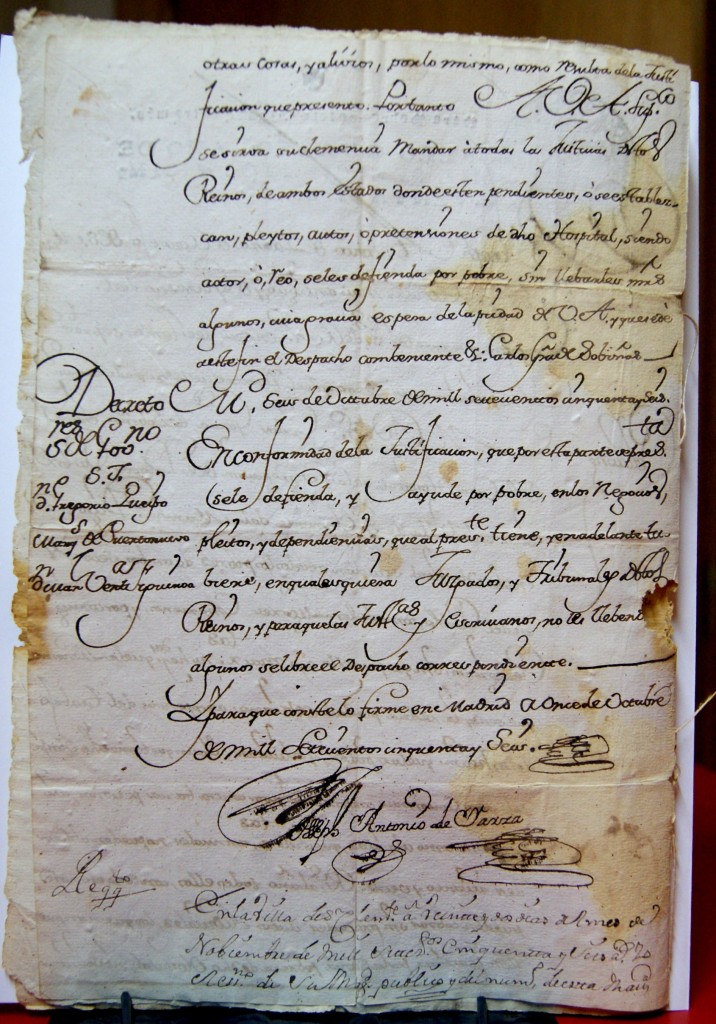 otras cosas, y alivios, por lo mismo, como resulta de la Justi
ficacion que presento. Por tanto A. V. A. Sup.co
se sirva su clemencia Mandar à todas las Justicias destos
Reinos, de ambos estados donde esten pendientes, ò se establez-
can, pleytos, autos, ò pretensiones de dho Hospital, siendo
actor, ò, Reo, se les defienda por pobre, sin llebarles mrs
algunos, cuia gracia espera de la piedad de V. A. y que se dè
a este fin el Despacho combeniente &: Carlos
Decreto
S.res de G.no
S. S.
D. Gregorio Queipo
Marq.s de Puertonuevo
D. Juan
M.d Seis de Octubre de mill setecientos cinquenta y seis.
En conformidad de la Justificacion, que por esta parte se pres.ta
se le defienda, y ayude por pobre, en los Negocios,
pleitos, y dependiencias, que al pres.te tiene, y en adelante tu-
biere, en qualesquiera Juzgados, y Tribunales destos
Reinos, y para que las Just.as y Escrivanos, no les lleben dros
algunos se libre el Despacho correspondiente.
Y para que conste lo firme en Madrid a Once de Octubre
de mill Setecientos cinquenta y Seis.
Joseph Antonio de Yarza
Req.to
En la Villa de a veinte y dos dias del mes de
Nobiembre de mill setez.os Cinquenta y seis a.s Yo
Ess.no de Su Mag. publico y del num.o de esta